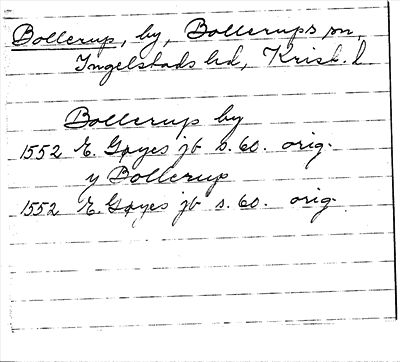 Bollerup, by, Bollerups sn,
Ingelstads hd, Krist. l
Bollerup by
1552 E. Gøyes jb s. 60. orig.
y Bollerup
1552 E. Gøyes jb s. 60. orig